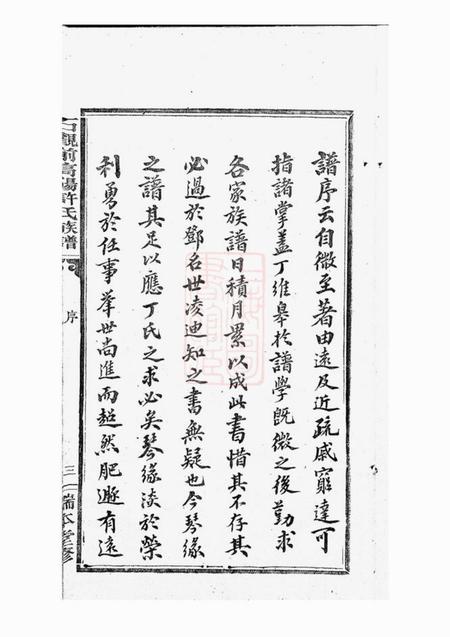 譜序云自微至著由遠及近疏戚窮達可
指諸掌蓋丁維皋於譜學既微之後勤求
各家族譜日積月累以成此書惜其不存其
必過於鄧名世凌迪知之書無疑也今琴緣
之譜其足以應丁氏之求必矣琴緣淡於榮
利勇於任事舉世尚進而超然肥遯有遠
觀前高陽許氏族譜
序
三
端本堂修